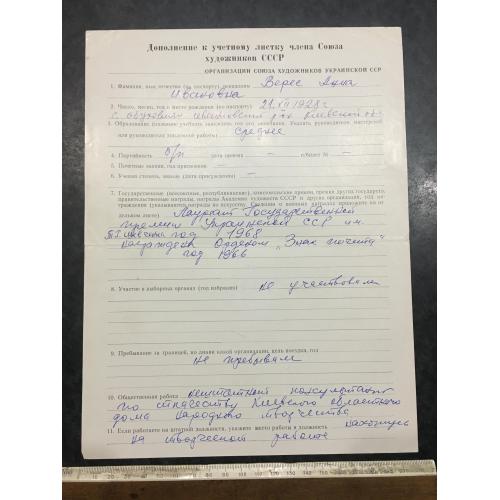 Дополнение к учетному листку члена Союза
художников СССР
ОРГАНИЗАЦИИ СОЮЗА ХУДОЖНИКОВ УКРАИНСКОЙ ССР
1. Фамилия, имя, отчество (по паспорту), псевдоним Верес Анна
Ивановна
2. Число, месяц, год и место рождения (по паспорту) 21.XII 1928 г.
с. Обуховичи Иванковский р-н Киевской об.
3. Образование
или руководителя дипломной работы) среднее
4. Партийность б/п дата приема — п/билет № —
5. Почетные звания, год присвоения —
6. Ученая степень, звание (дата присуждения) —
7. Государственные (всесоюзные, республиканские), комсомольские премии, премии других государств,
правительственные награды, награды Академии художеств СССР и других организаций, год на-
граждения
дельном листе) Лауреат Государственной
премии Украинской ССР им.
Т. Г. Шевченка год 1968
Награждена Орденом „Знак почета"
год 1966
8. Участие в выборных органах (год избрания) не участвовала
9. Пребывание за границей, по линии какой организации, цель поездки, год
не пребывала
10. Общественная работа нештатный консультант
по ткачеству Киевского областного
дома народного творчества
11. Если работаете на штатной должности, укажите место работы и должность нахожусь
на творческой работе